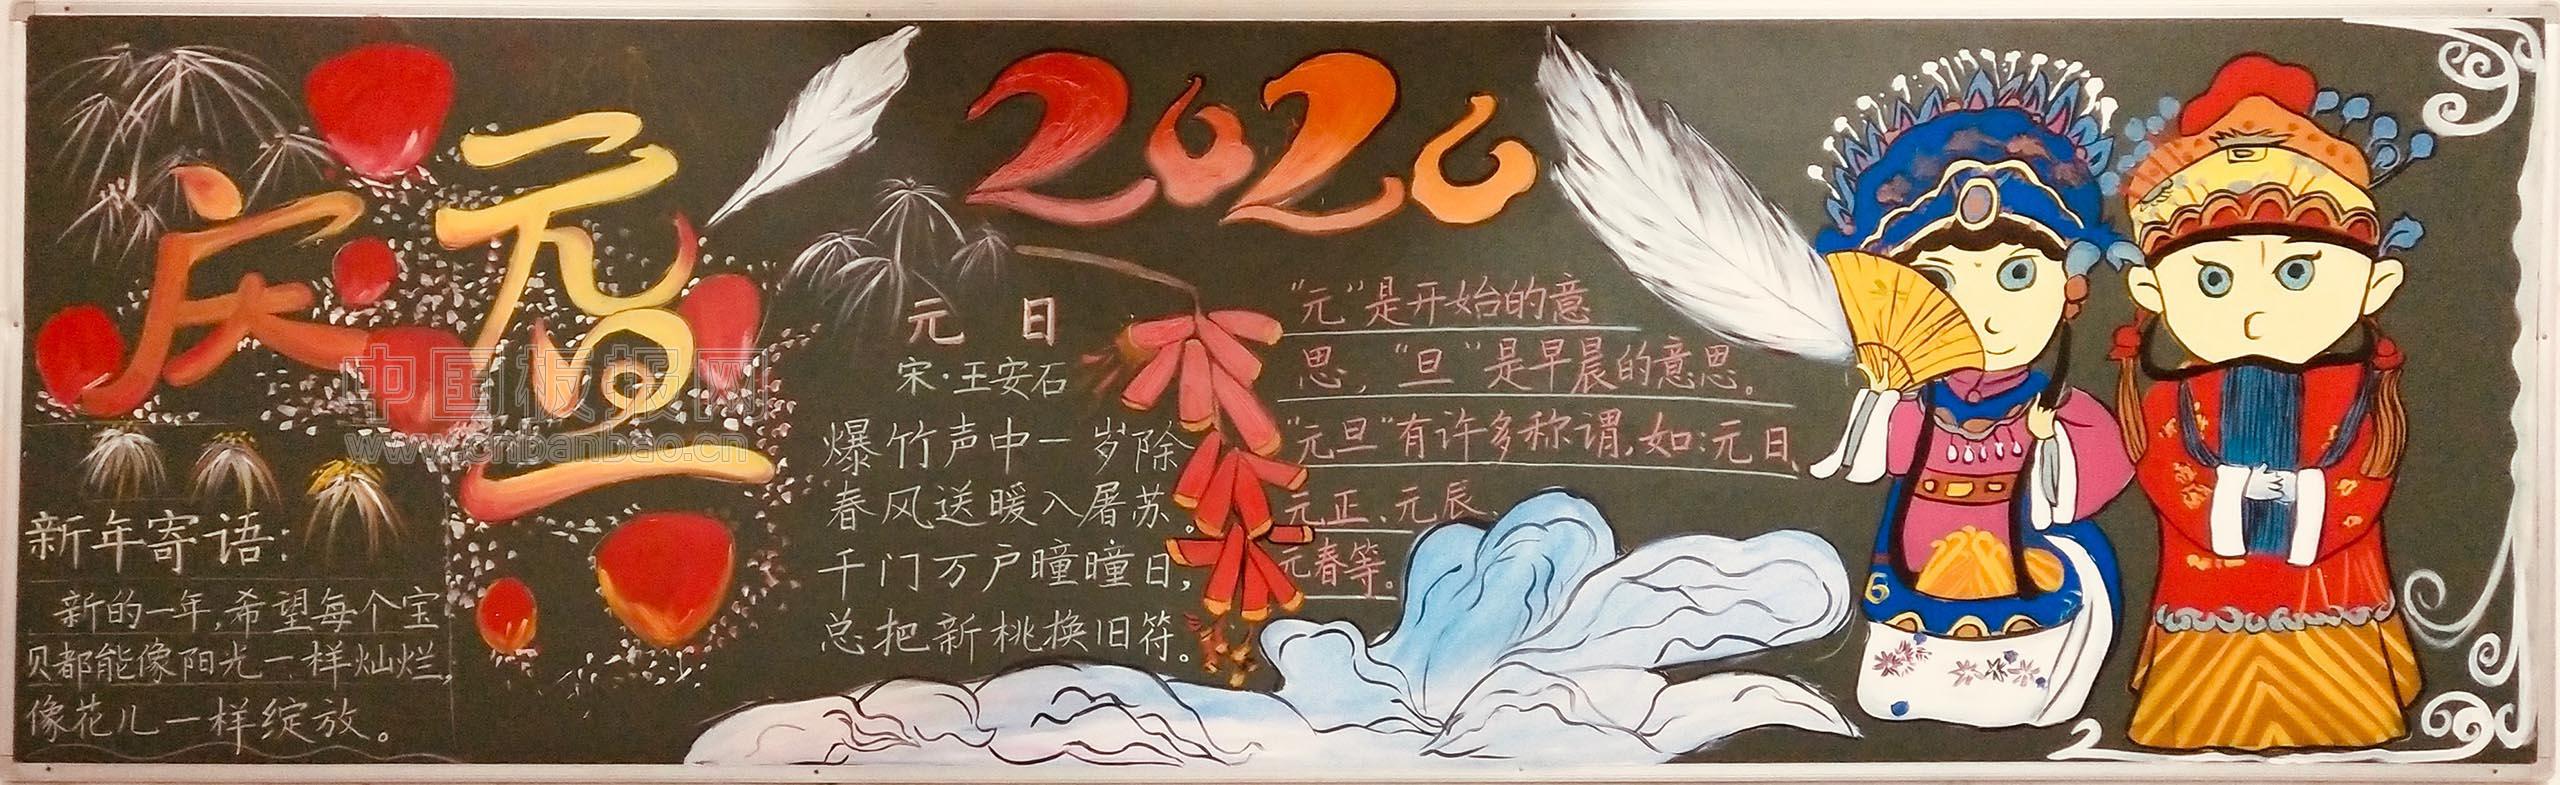 庆元旦
2020
新年寄语：
新的一年，希望每个宝
贝都能像阳光一样灿烂，
像花儿一样绽放。
元 日
宋·王安石
爆竹声中一岁除
春风送暖入屠苏。
千门万户曈曈日，
总把新桃换旧符。
“元”是开始的意
思，“旦”是早晨的意思。
“元旦”有许多称谓，如：元日、
元正、元辰、
元春等。
中国板报网
www.cnbanbao.cn